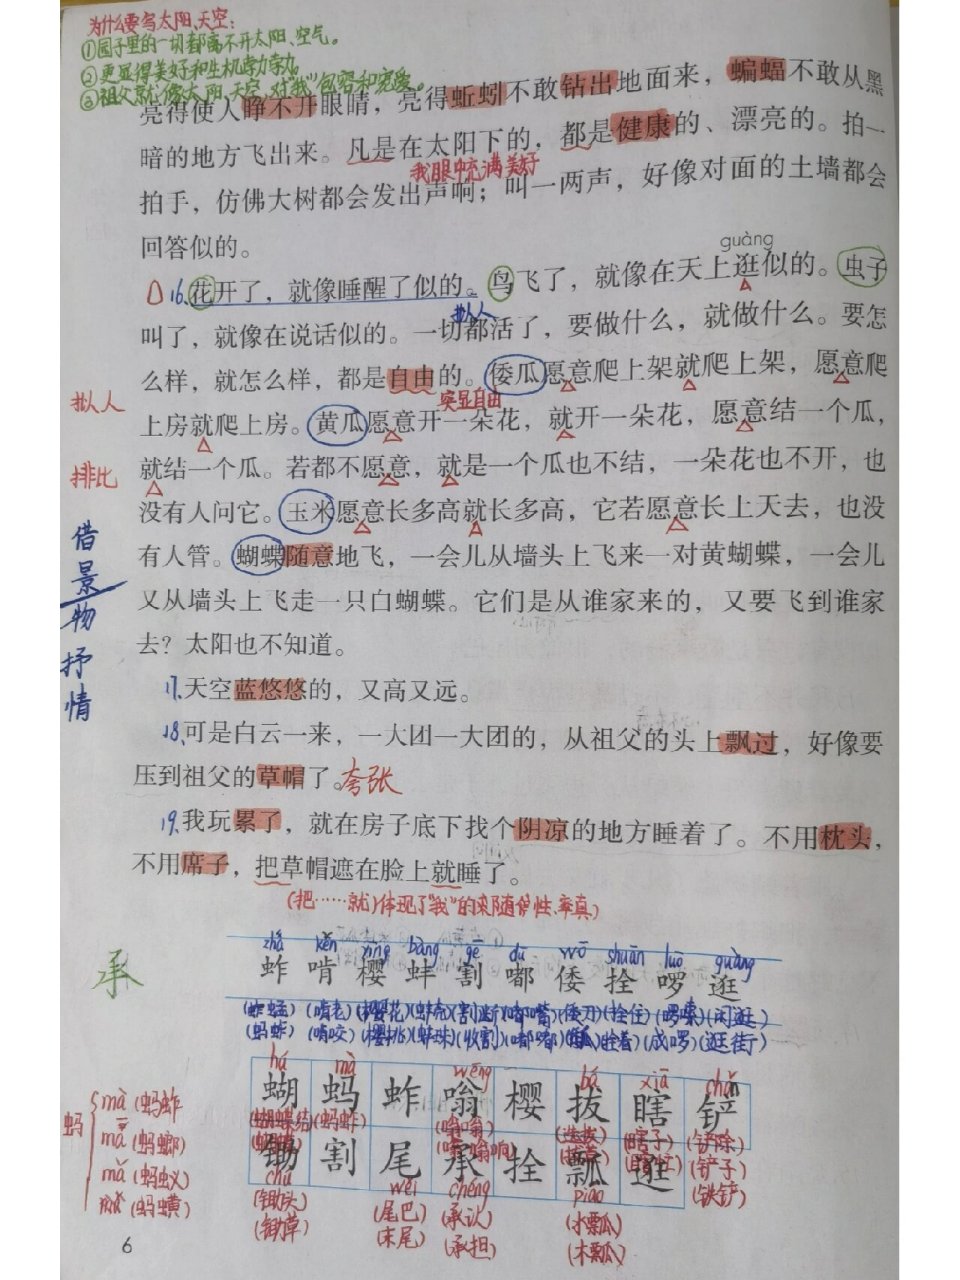 为什么要写太阳、天空:
①园子里的一切都离不开太阳、空气。
②更显得美好和生机勃勃
③祖父就像太阳、天空,对“我”包容和宠爱。
亮得使人睁不开眼睛,亮得蚯蚓不敢钻出地面来,蝙蝠不敢从黑
暗的地方飞出来。凡是在太阳下的,都是健康的、漂亮的。拍一
我眼中充满美好
拍手,仿佛大树都会发出声响;叫一两声,好像对面的土墙都会
回答似的。
guàng
16.花开了,就像睡醒了似的。鸟飞了,就像在天上逛似的。虫子
拟人
叫了,就像在说话似的。一切都活了,要做什么,就做什么。要怎
么样,就怎么样,都是自由的。倭瓜愿意爬上架就爬上架,愿意爬
拟人
突显自由
上房就爬上房。黄瓜愿意开一朵花,就开一朵花,愿意结一个瓜,
排比
就结一个瓜。若都不愿意,就是一个瓜也不结,一朵花也不开,也
没有人问它。玉米愿意长多高就长多高,它若愿意长上天去,也没
借景物抒情
有人管。蝴蝶随意地飞,一会儿从墙头上飞来一对黄蝴蝶,一会儿
又从墙头上飞走一只白蝴蝶。它们是从谁家来的,又要飞到谁家
去?太阳也不知道。
17.天空蓝悠悠的,又高又远。
18.可是白云一来,一大团一大团的,从祖父的头上飘过,好像要
压到祖父的草帽了。夸张
19.我玩累了,就在房子底下找个阴凉的地方睡着了。不用枕头,
不用席子,把草帽遮在脸上就睡了。
(把……就)体现了“我”的来随性、率真)
承
zhà kěn yīng bàng gē dū wō shuān luō guàng
蚱 啃 樱 蚌 割 嘟 倭 拴 啰 逛
(蚱蜢)(啃老)(樱花)(蚌壳)(割断)(嘟嘴)(倭刀)(拴住)(啰嗦)(闲逛)
(蚂蚱)(啃咬)(樱桃)(蚌珠)(收割)(嘟嘟)(倭瓜)(拴着)(逛街)
hú mà wēng bá xiā chǎn
蝴 蚂 蚱 嗡 樱 拔 瞎 铲
(蝴蝶结)(蚂蚱)(嗡嗡)(选拔)(瞎子)(铲除)
(嗡嗡响)(铲子)
(铁铲)
锄 割 尾 承 拴 瓢 逛
chú wěi chéng piáo
(锄头)(尾巴)(承认)(水瓢)
(锄草)(末尾)(承担)(木瓢)
蚂
mà(蚂蚱
mā(蚂螂)
mǎ(蚂蚁)
(蚂蟥)
6